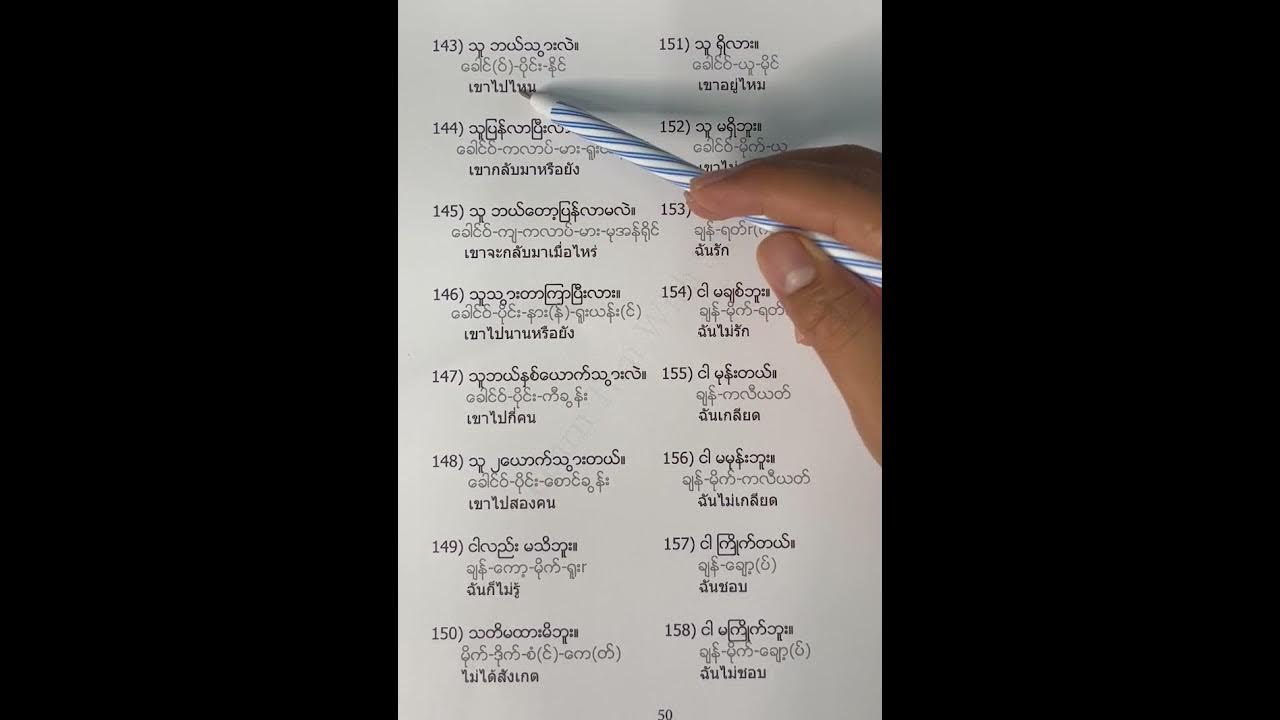 143) သူ ဘယ်သွားလဲ။
ခေါင်(ဝ်)-ပိုင်း-နိုင်
เขาไปไหน
144) သူပြန်လာပြီးလ
ခေါင်ဝ်-ကလာပ်-မား-ရူး
เขากลับมาหรือยัง
145) သူ ဘယ်တော့ပြန်လာမလဲ။
ခေါင်ဝ်-ကျ-ကလာပ်-မား-မုအန်ရိုင်
เขาจะกลับมาเมื่อไหร่
146) သူသွားတာကြာပြီးလား။
ခေါင်ဝ်-ပိုင်း-နား(န်)-ရူးယန်း(င်)
เขาไปนานหรือยัง
147) သူဘယ်နှစ်ယောက်သွားလဲ။
ခေါင်ဝ်-ပိုင်း-ကီခွန်း
เขาไปกี่คน
148) သူ ၂ယောက်သွားတယ်။
ခေါင်ဝ်-ပိုင်း-စောင်ခွန်း
เขาไปสองคน
149) ငါလည်း မသိဘူး။
ချန်-ကော့-မိုက်-ရူးr
ฉันก็ไม่รู้
150) သတိမထားမိဘူး။
မိုက်-ဒိုက်-စံ(င်)-ကေ(တ်)
ไม่ได้สังเกต
151) သူ ရှိလား။
ခေါင်ဝ်-ယူ-မိုင်
เขาอยู่ไหม
152) သူ မရှိဘူး။
ခေါင်ဝ်-မိုက်-ယူ
เขาไม่
153)
ချန်-ရတ်r(
ฉันรัก
154) ငါ မချစ်ဘူး။
ချန်-မိုက်-ရတ်
ฉันไม่รัก
155) ငါ မုန်းတယ်။
ချန်-ကလီယတ်
ฉันเกลียด
156) ငါ မမုန်းဘူး။
ချန်-မိုက်-ကလီယတ်
ฉันไม่เกลียด
157) ငါ ကြိုက်တယ်။
ချန်-ချော့(ပ်)
ฉันชอบ
158) ငါ မကြိုက်ဘူး။
ချန်-မိုက်-ချော့(ပ်)
ฉันไม่ชอบ
50